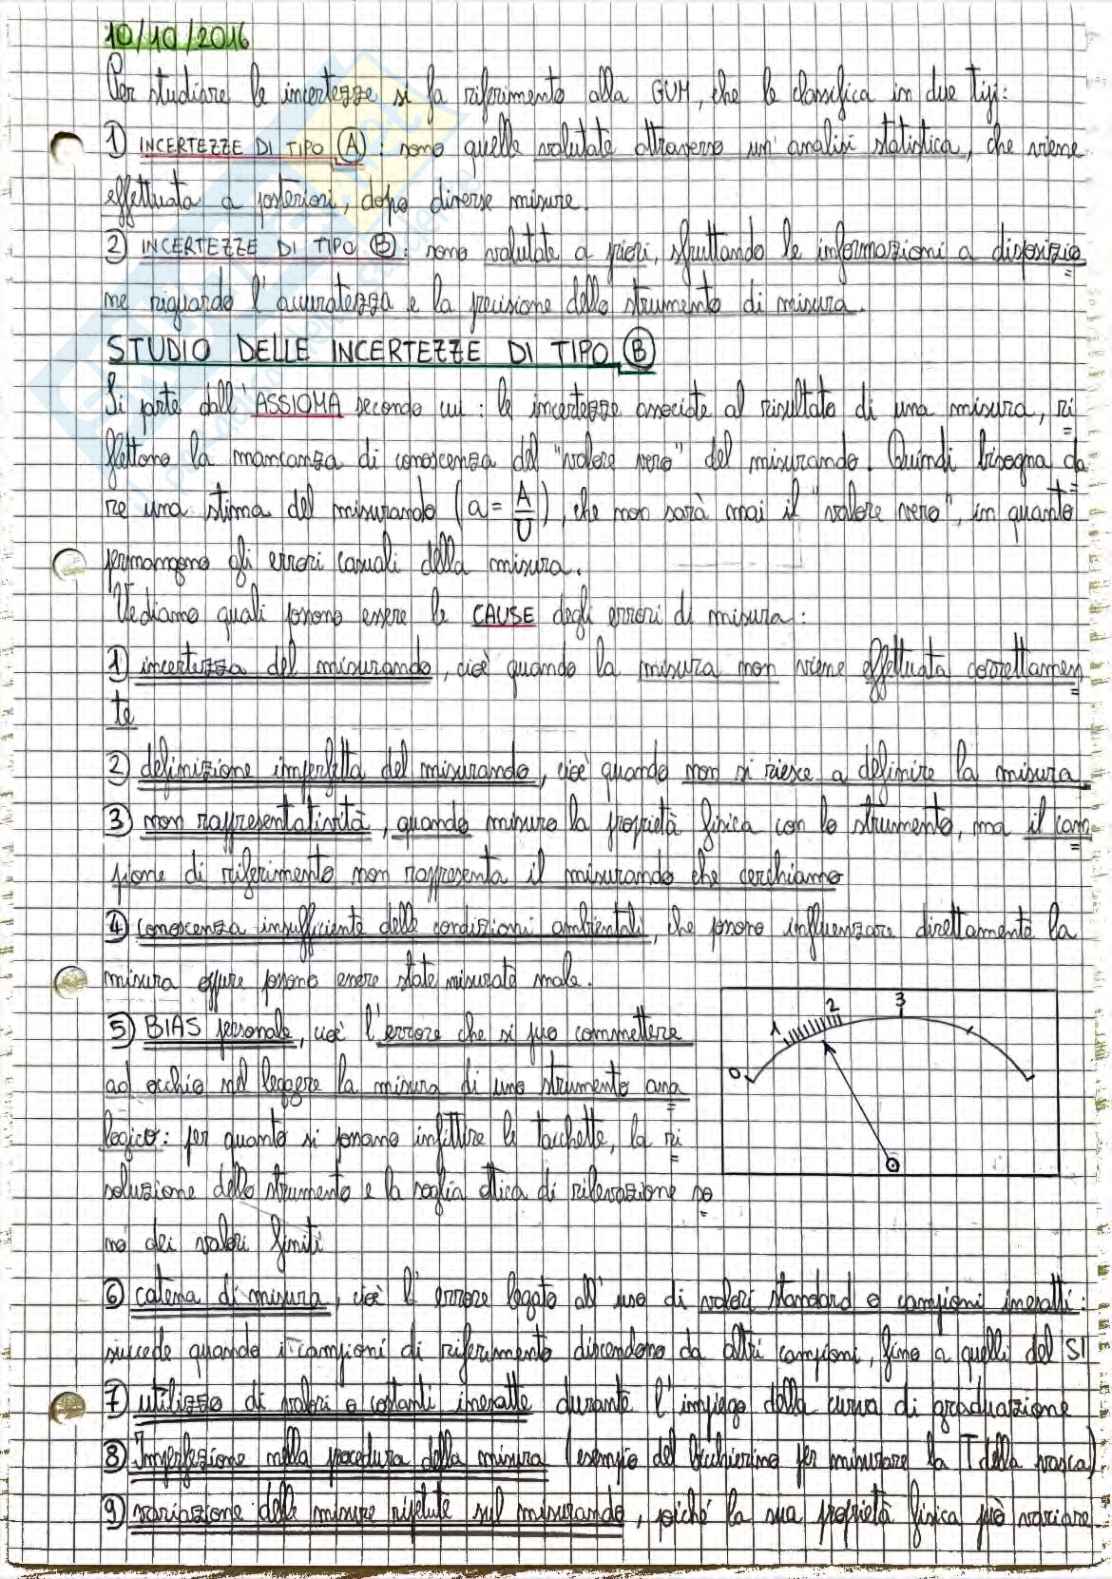 10/10/2016
Per studiare le incertezze si fa riferimento alla GUM, che le classifica in due tipi:
1) INCERTEZZE DI TIPO A : sono quelle valutate attraverso un' analisi statistica, che viene
effettuata a posteriori, dopo diverse misure.
2) INCERTEZZE DI TIPO B : sono valutate a priori, sfruttando le informazioni a disposizio
ne riguardo l'accuratezza e la precisione dello strumento di misura.
STUDIO DELLE INCERTEZZE DI TIPO B
Si parte dall'ASSIOMA secondo cui : le incertezze associate al risultato di una misura, ri
flettono la mancanza di conoscenza del "valore vero" del misurando. Quindi bisogna da
re una stima del misurando (a = A/U), che non sarà mai il "valore vero", in quanto
permangono gli errori casuali della misura.
Vediamo quali possono essere le CAUSE degli errori di misura :
1) incertezza del misurando, cioè quando la misura non viene effettuata correttamen
te
2) definizione imperfetta del misurando, cioè quando non si riesce a definire la misura
3) non rappresentatività, quando misuro la proprietà fisica con lo strumento, ma il cam
pione di riferimento non rappresenta il misurando che cerchiamo
4) conoscenza insufficiente delle condizioni ambientali, che possono influenzare direttamente la
misura oppure possono essere state misurate male.
5) BIAS personale, cioè l'errore che si può commettere
ad occhio nel leggere la misura di uno strumento ana
logico: per quanto si possano infittire le tacchette, la ri
soluzione dello strumento e la soglia ottica di rilevazione so
no dei valori finiti
0 1 2 3
6) catena di misura, cioè l'errore legato all'uso di valori standard o campioni inesatti :
succede quando i campioni di riferimento discendono da altri campioni, fino a quelli del SI
7) utilizzo di valori o costanti inesatte durante l'impiego della curva di graduazione
8) Imperfezione nella procedura della misura (esempio del bicchierino per misurare la T della vasca)
9) variazione delle misure ripetute sul misurando, poiché la sua proprietà fisica può variare